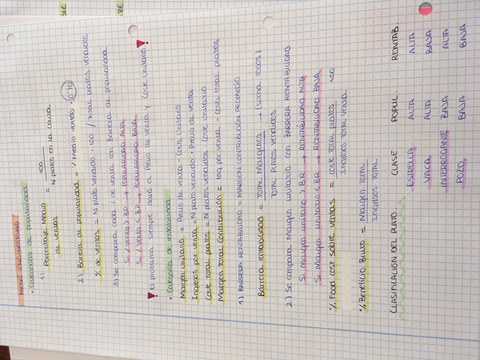 MENU ENGINEERING
· Categorías de popularidad
1) Porcentaje Medio de ventas = 100 / N platos en la carta
2) Barrera de popularidad = % Medio ventas ·
% de ventas = N plato vendido · 100 / total platos vendidos
3) Se compara cada % de ventas con Barrera de popularidad
Si % ventas > BP → POPULARIDAD ALTA
Si % ventas < BP → POPULARIDAD BAJA
! El problema siempre dará el Precio de venta y Coste Unitario !
· Categoría de rentabilidad
Margen Unitario = Precio de venta - Coste Unitario
Ingresos por venta = N platos vendidos · Precio de venta
Coste total platos = N platos vendidos · Coste unitario
Margen total contribución = Ing por venta - coste total platos
1) BARRERA RENTABILIDAD = MARGEN CONTRIBUCIÓN PROMEDIO
Barrera rentabilidad = TOTAL Márgenes → (suma todos) / TOTAL PLATOS VENDIDOS
2) Se compara Margen unitario con BARRERA RENTABILIDAD
Si Margen unitario > BR → RENTABILIDAD ALTA
Si Margen unitario < BR → RENTABILIDAD BAJA
% Food cost sobre ventas = Coste total platos / Ingresos total venta · 100
% Beneficio Bruto = Margen total / Ingresos total
CLASIFICACIÓN DEL PLATO: CLASE POPUL RENTAB
ESTRELLA ALTA ALTA
VACA ALTA BAJA
INTERROGANTE BAJA ALTA
POZO BAJA BAJA